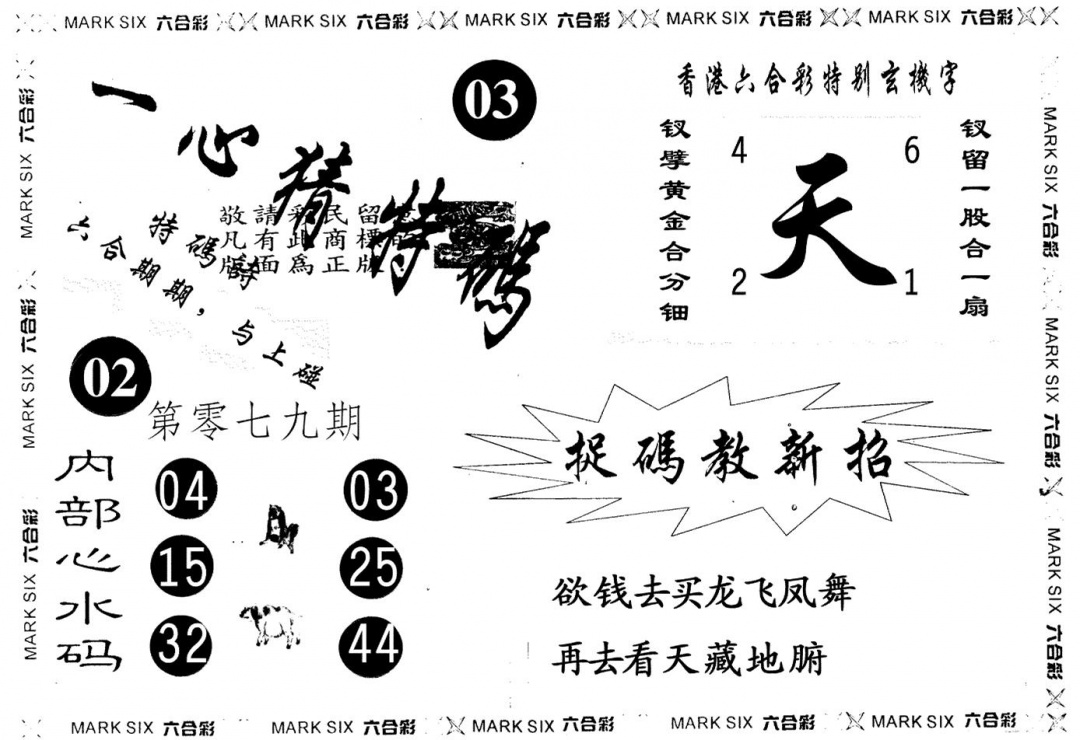 MARK SIX 六合彩 MARK SIX 六合彩 MARK SIX 六合彩 MARK SIX 六合彩 MARK SIX 六合彩
MARK SIX 六合彩
MARK SIX 六合彩
MARK SIX 六合彩
一心猜特碼
03
敬請彩民留意
凡有此商標的
版面為正版
特碼詩
六合期期，与上碰
02
第零七九期
内部心水码
04
03
15
25
32
44
香港六合彩特别玄機字
钗擘黄金合分钿
4
6
天
2
1
钗留一股合一扇
捉碼教新招
欲钱去买龙飞凤舞
再去看天藏地腑
MARK SIX 六合彩
MARK SIX 六合彩
MARK SIX 六合彩
MARK SIX 六合彩 MARK SIX 六合彩 MARK SIX 六合彩 MARK SIX 六合彩 MARK SIX 六合彩